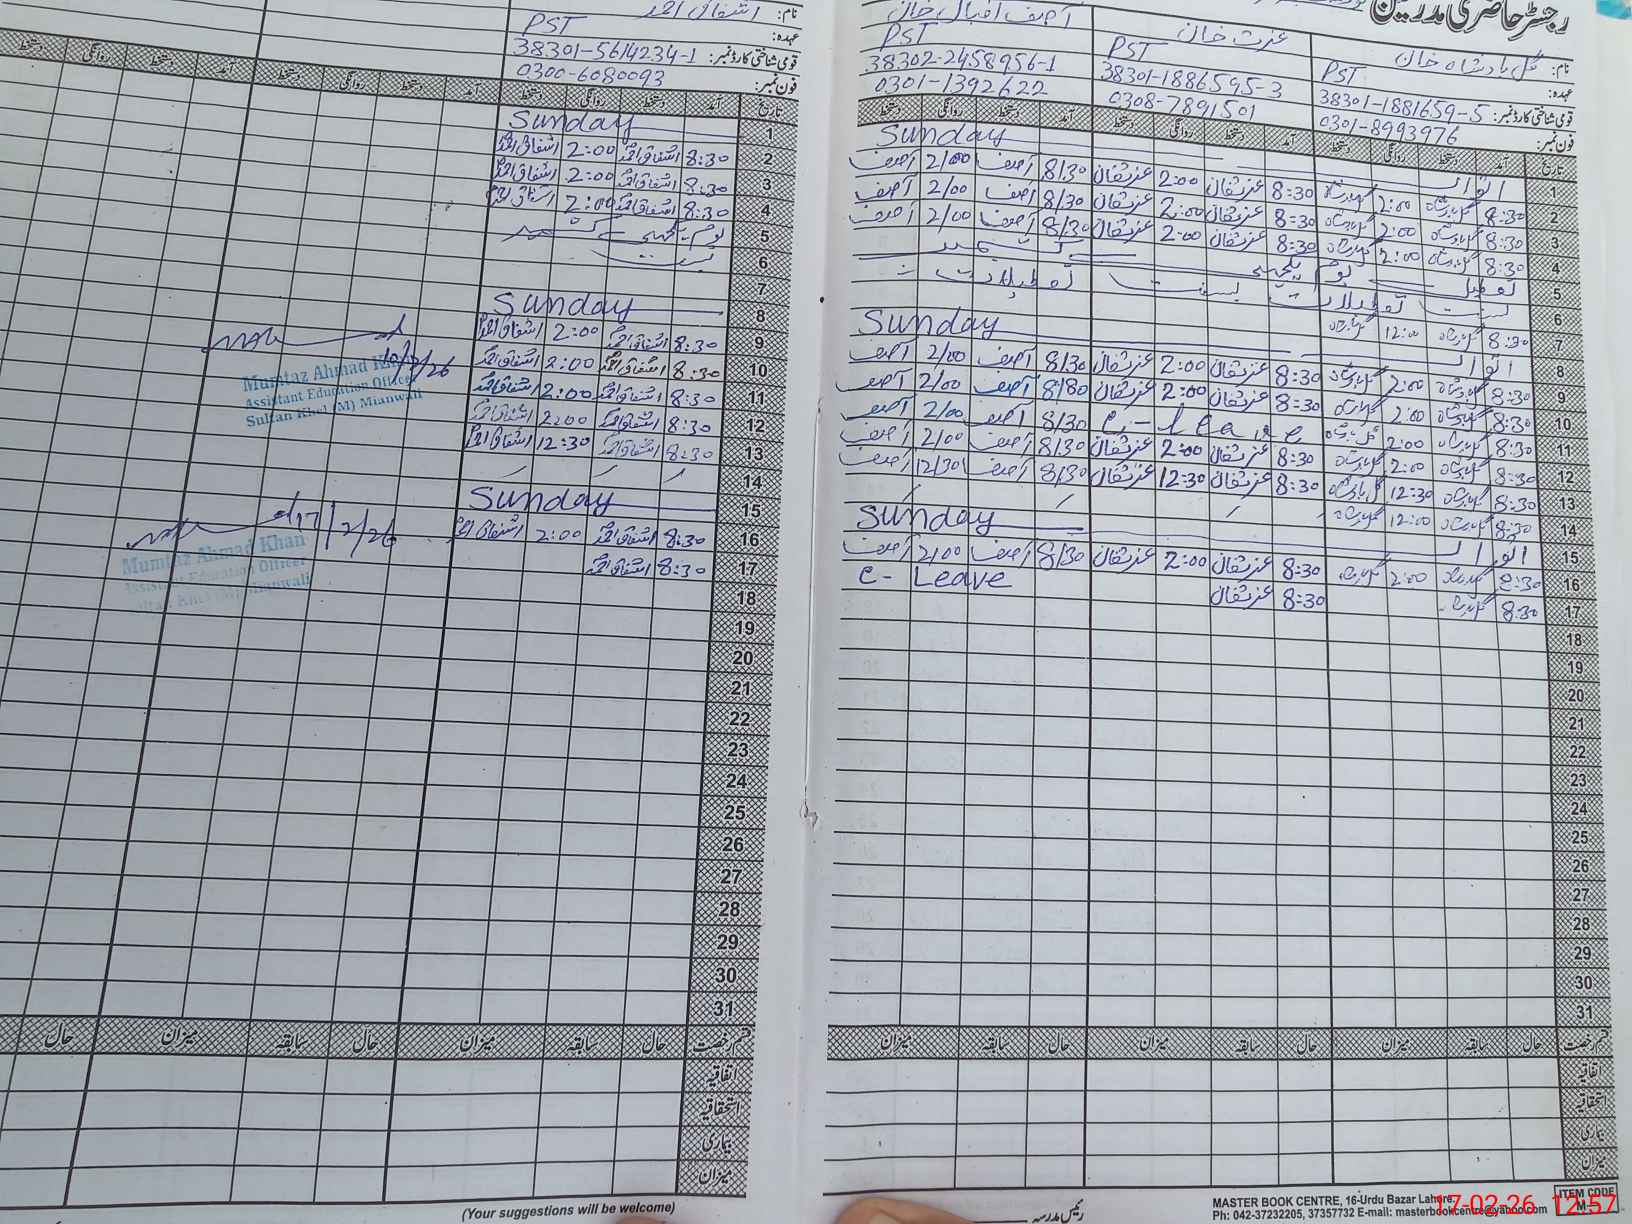 رجسٹر حاضری مدرسین
نام: گل بادشاہ خان عزت خان آصف اقبال خان
عہدہ: PST PST PST
قومی شناختی کارڈ نمبر: 38301-1881659-5 38301-1886595-3 38302-2458956-1
فون نمبر: 0301-8993976 0308-7891501 0301-1392622
تاریخ آمد دستخط روانگی دستخط آمد دستخط روانگی دستخط آمد دستخط روانگی دستخط
1 اتوار Sunday
2 8:30 2:00 8:30 2:00 8/30 آصف 2/00 آصف
3 8:30 2:00 8:30 2:00 8/30 آصف 2/00 آصف
4 8:30 2:00 8:30 2:00 8/30 آصف 2/00 آصف
5 تعطیل یوم یکجہتی کشمیر
6 بسنت تعطیلات بسنت تعطیلات
7 8:30 12:00
8 اتوار Sunday
9 8:30 2:00 8:30 2:00 8/30 آصف 2/00 آصف
10 8:30 2:00 8:30 2:00 8/30 آصف 2/00 آصف
11 8:30 2:00 e-leave 8/30 آصف 2/00 آصف
12 8:30 2:00 8:30 2:00 8/30 آصف 2/00 آصف
13 8:30 12:30 8:30 12:30 8/30 آصف 12/30 آصف
14 8:30 12:00
15 اتوار Sunday
16 8:30 2:00 8:30 2:00 8/30 آصف 2/00 آصف
17 8:30 8:30 e-Leave
18
19
20
21
22
23
24
25
26
27
28
29
30
31
قسم رخصت حال سابقہ میزان حال سابقہ میزان حال سابقہ میزان
اتفاقیہ
استحقاقیہ
بیماری
میزان
رئیس مدرسہ
MASTER BOOK CENTRE, 16-Urdu Bazar Lahore.
Ph: 042-37232205, 37357732 E-mail: masterbookcentre@yahoo.com
ITEM CODE
17-02-26 12:57
نام: اشفاق احمد
عہدہ: PST
قومی شناختی کارڈ نمبر: 38301-5614234-1
فون نمبر: 0300-6080093
تاریخ آمد دستخط روانگی دستخط آمد دستخط روانگی دستخط آمد دستخط روانگی دستخط
1 Sunday
2 8:30 اشفاق احمد 2:00 اشفاق احمد
3 8:30 اشفاق احمد 2:00 اشفاق احمد
4 8:30 اشفاق احمد 2:00 اشفاق احمد
5 یوم یکجہتی کشمیر
6 بسنت
7
8 Sunday
9 8:30 اشفاق احمد 2:00 اشفاق احمد
10 8:30 اشفاق احمد 2:00 اشفاق احمد
11 8:30 اشفاق احمد 2:00 اشفاق احمد
12 8:30 اشفاق احمد 2:00 اشفاق احمد
13 8:30 اشفاق احمد 12:30 اشفاق احمد
14
15 Sunday
16 8:30 اشفاق احمد 2:00 اشفاق احمد
17 8:30 اشفاق احمد
18
19
20
21
22
23
24
25
26
27
28
29
30
31
Mumtaz Ahmad Khan
Assistant Education Officer
Sultan Khel (M) Mianwali
17/2/26
Mumtaz Ahmad Khan
Assistant Education Officer
Sultan Khel (M) Mianwali
قسم رخصت حال سابقہ میزان حال سابقہ میزان حال
اتفاقیہ
استحقاقیہ
بیماری
میزان
(Your suggestions will be welcome)